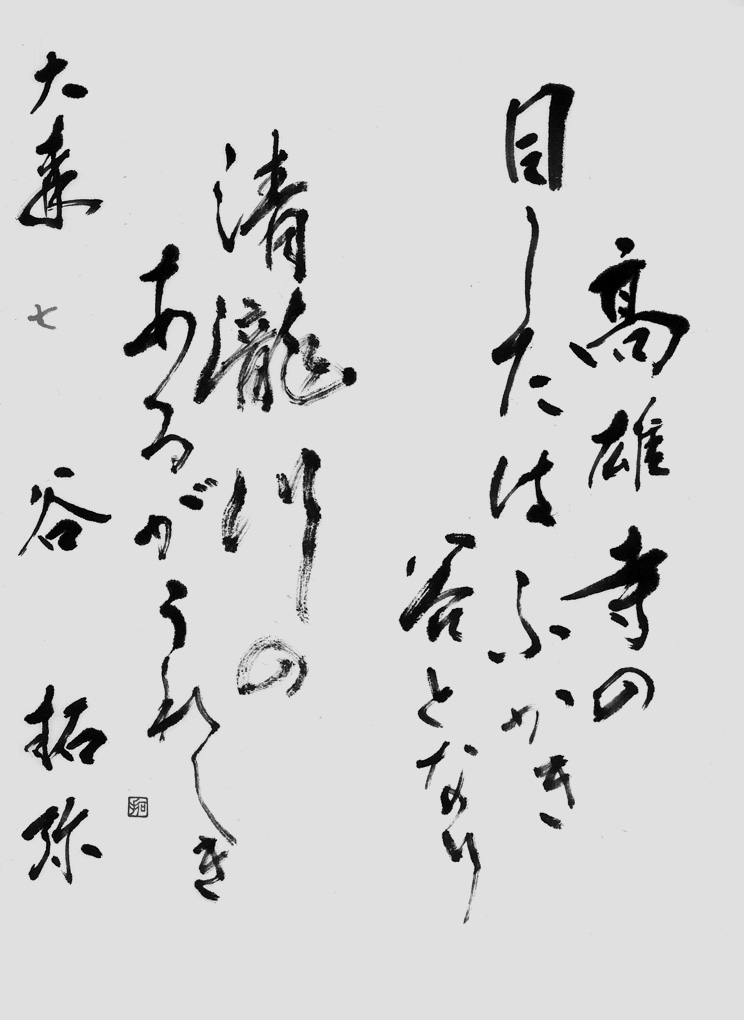 高雄寺の
目したはふかき
谷となり
清瀧川の
あるがうれしき
大森 七 谷 拓弥